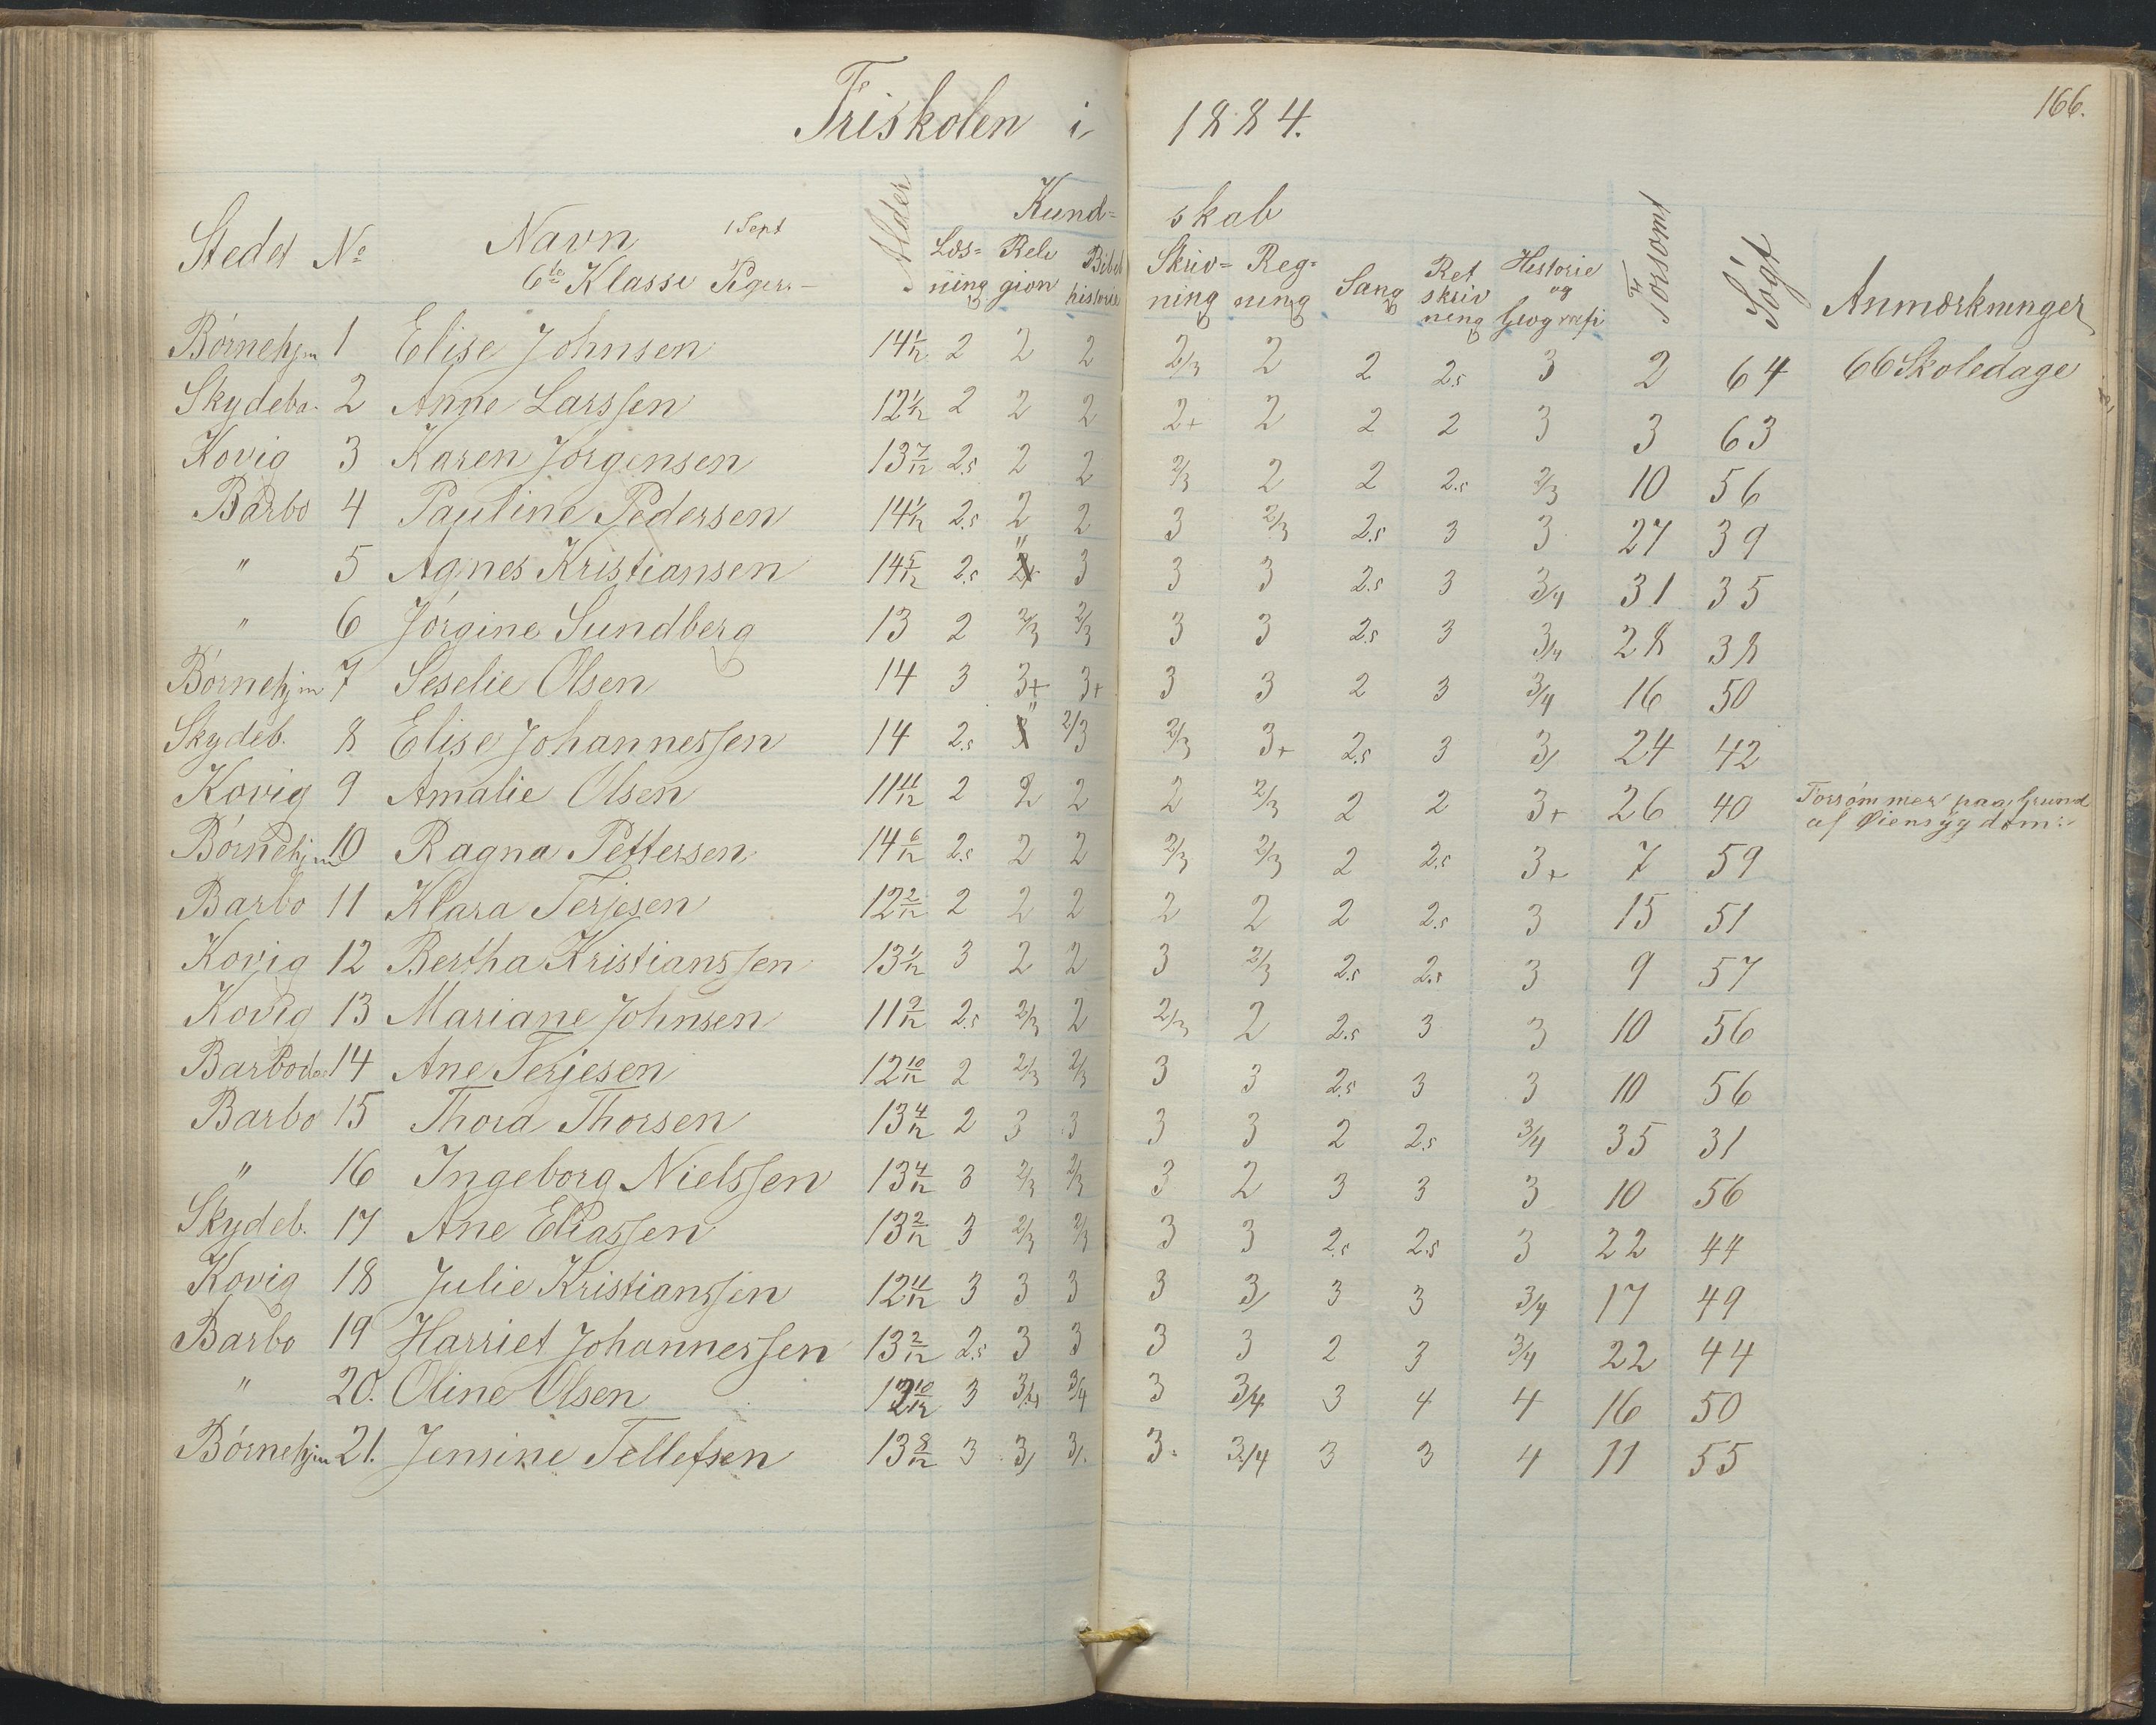 Friskolen i 1884.
166.
Stedet No Navn 1 Sept Alder Kund= skab Forsømt Søgt Anmærkninger
6te Klasse Piger Læs=ning Reli gion Bibel historie Skriv=ning Reg=ning Sang Ret skriv ning Historie og Geografi
Børnehjm 1 Elise Johnsen 14 1/12 2 2 2 2/3 2 2 2.5 3 2 64 66 Skoledage
Skydeba. 2 Anne Larssen 12 1/12 2 2 2 2+ 2 2 2 3 3 63
Kovig 3 Karen Jørgensen 13 7/12 2.5 2 2 2/3 2 2 2.5 2/3 10 56
Barbo 4 Pauline Pedersen 14 1/12 2.5 2 2 3 2/3 2.5 3 3 27 39
" 5 Agnes Kristiansen 14 5/12 2.5 " 3 3 3 2.5 3 3/4 31 35
" 6 Jørgine Sundberg 13 2 2/3 2/3 3 3 2.5 3 3/4 28 38
Børnehjm 7 Seselie Olsen 14 3 3+ 3+ 3 3 2 3 3/4 16 50
Skydeb. 8 Elise Johannessen 14 2.5 " 2/3 2/3 3+ 2.5 3 3/ 24 42
Kovig 9 Amalie Olsen 11 11/12 2 2 2 2 2/3 2 2 3+ 26 40 Forsømmer paa Grund
af Øiensygdom:
Børnehjm 10 Ragna Pettersen 14 6/12 2.5 2 2 2/3 2/3 2 2.5 3+ 7 59
Barbo 11 Klara Terjesen 12 2/12 2 2 2 2 2 2 2.5 3 15 51
Kovig 12 Bertha Kristianssen 13 1/12 3 2 2 3 2/3 2.5 2.5 3 9 57
Kovig 13 Mariane Johnsen 11 9/12 2.5 2/3 2 2/3 2 2.5 3 3 10 56
Barbodal 14 Ane Terjesen 12 10/12 2 2/3 2/3 3 3 2.5 3 3 10 56
Barbo 15 Thora Thorsen 13 4/12 2 3 3 3 3 2 2.5 3/4 35 31
" 16 Ingeborg Nielssen 13 4/12 3 2/3 2/3 3 2 3 3 3 10 56
Skydeb. 17 Ane Eliassen 13 2/12 3 2/3 2/3 3 3 2.5 2.5 3 22 44
Kovig 18 Julie Kristianssen 12 11/12 3 3 3 3 3/ 3 3 3/4 17 49
Barbo 19 Harriet Johannessen 13 2/12 2.5 3 3 3 3 2 3 3/4 22 44
" 20. Oline Olsen 12 10/12 3 3/4 3/4 3 3/4 3 4 4 16 50
Børnehjm 21. Jensine Tellefsen 13 8/12 3 3/ 3/. 3. 3/4 3 3 4 11 55